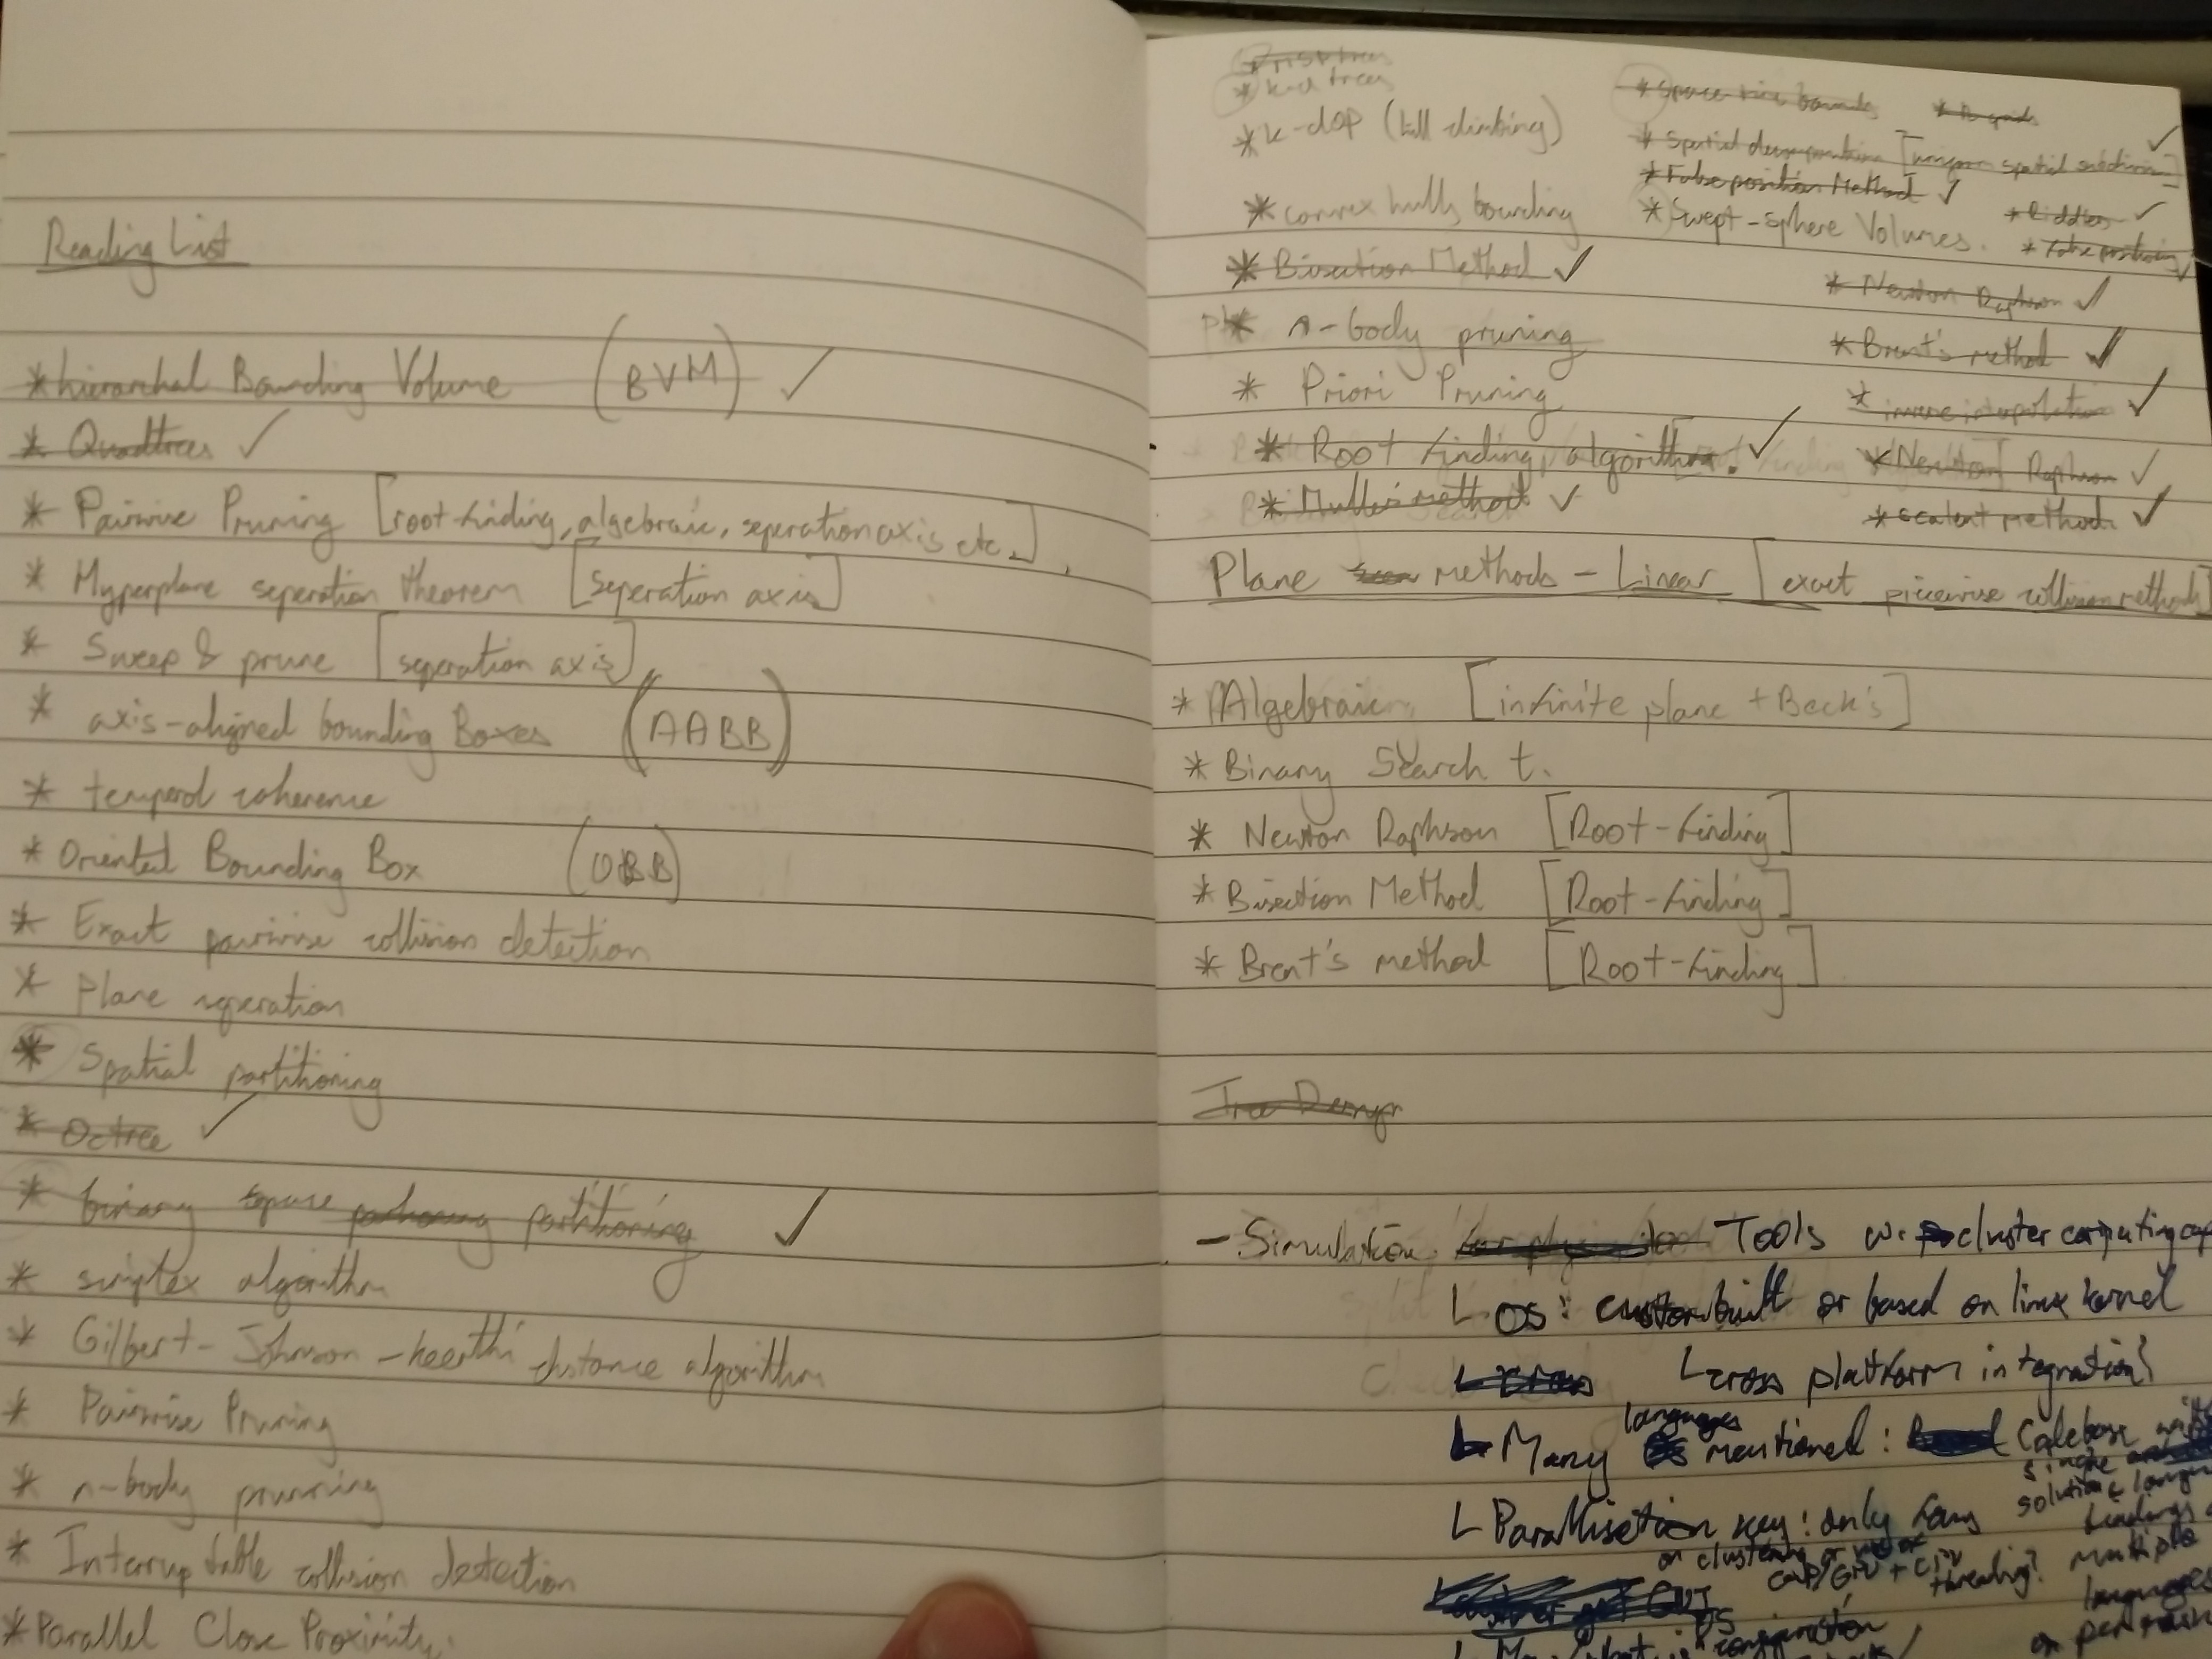 Reading List
*hierarchal Bounding Volume (BVM) ✓
* Quadtrees ✓
* Pairwise Pruning [root-finding, algebraic, seperation axis etc.]
* Hyperplane seperation theorem [seperation axis]
* Sweep & prune [seperation axis]
* axis-aligned bounding Boxes (AABB)
* temporal coherence
* Oriented Bounding Box (OBB)
* Exact pairwise collision detection
* Plane seperation
* Spatial partitioning
* Octree ✓
* binary space partitioning ✓
* simplex algorithm
* Gilbert-Johnson-keerthi distance algorithm
* Pairwise Pruning
* n-body prunning
* Interruptable collision detection
*Parallel Close Proximity.
* k-d trees
* k-dop (hill climbing)
* convex hulls bounding
* Bisection Method ✓
* n-body pruning
* Priori Pruning
* Root finding algorithm. ✓
* Muller's method ✓
* Space-time bounds
* Spatial decomposition [spatial subdivision] ✓
* False position Method ✓
* Swept-sphere Volumes.
* Ridders ✓
* False positioning ✓
* Newton Raphson ✓
* Brent's method ✓
* inverse interpolation ✓
* Newton Raphson ✓
* scalent method ✓
Plane methods - Linear [exact piecewise collision methods]
* Algebraic [infinite plane + Beck's]
* Binary Search t.
* Newton Raphson [Root-finding]
* Bisection Method [Root-finding]
* Brent's method [Root-finding]
- Simulation Tools cluster computing
L OS: custom built or based on linux kernel
L cross platform integration?
L Many languages mentioned: Codebase
single
solution
L Parallisation key: only
on clustering or
threading?
multiple
languages